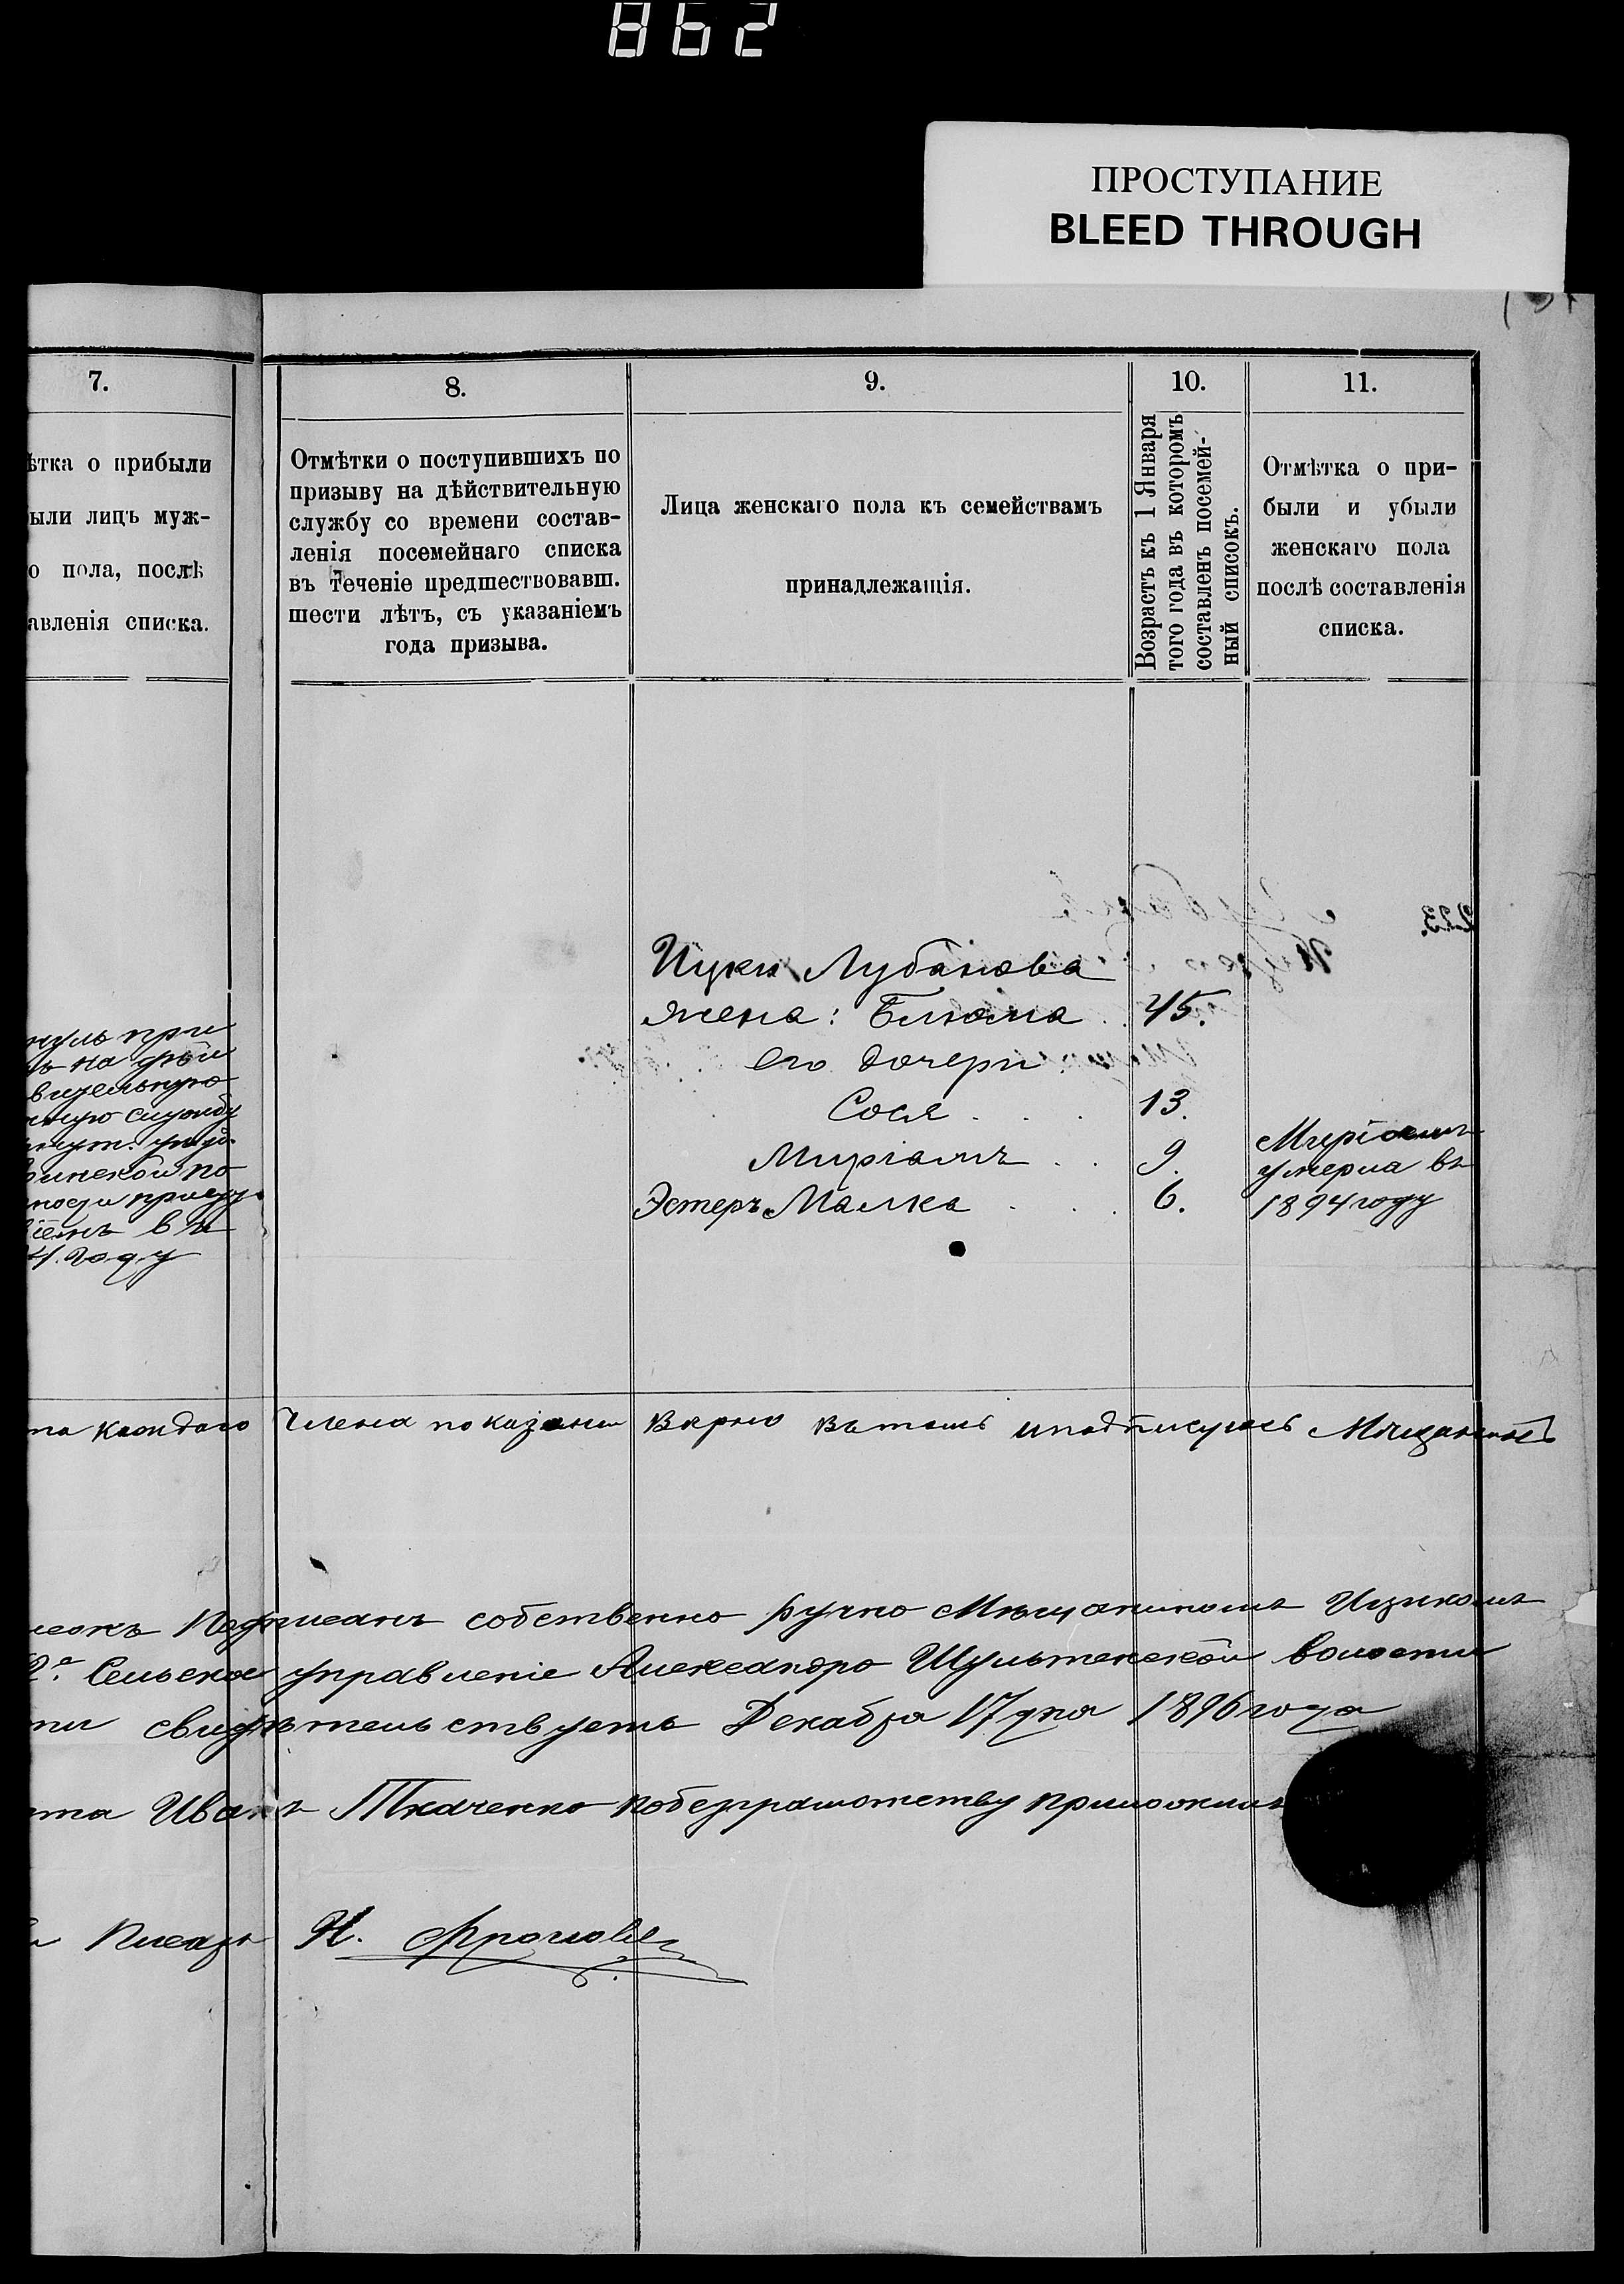 862
ПРОСТУПАНИЕ
BLEED THROUGH
7.
ѣтка о прибыли
ыли лицъ муж-
о пола, послѣ
авленія списка.
8.
Отмѣтки о поступившихъ по
призыву на дѣйствительную
службу со времени состав-
ленія посемейнаго списка
въ теченіе предшествовавш.
шести лѣтъ, съ указаніемъ
года призыва.
9.
Лица женскаго пола къ семействамъ
принадлежащія.
10.
Возрастъ къ 1 Января
того года въ которомъ
составленъ посемей-
ный списокъ.
11.
Отмѣтка о при-
были и убыли
женскаго пола
послѣ составленія
списка.
223.
при
на
службу
по
въ
году
Ицки Лубанова
жена: Блюма . . 45.
его дочери
Сося . . . 13.
Миріамъ . . 9.
Эстеръ Малка . . . 6.
Миріамъ
умерла въ
1894 году
каждого члена показаны верно въ томъ и подписуюсь Мещанинъ
Подписанъ собственно ручно Мѣщаниномъ Ицикомъ
Сельское управленіе Александро Шультенской волости
свидѣтельствуетъ Декабря 17 дня 1896 года
Иванъ Ткаченко по безграмотству приложилъ
Писарь Н.